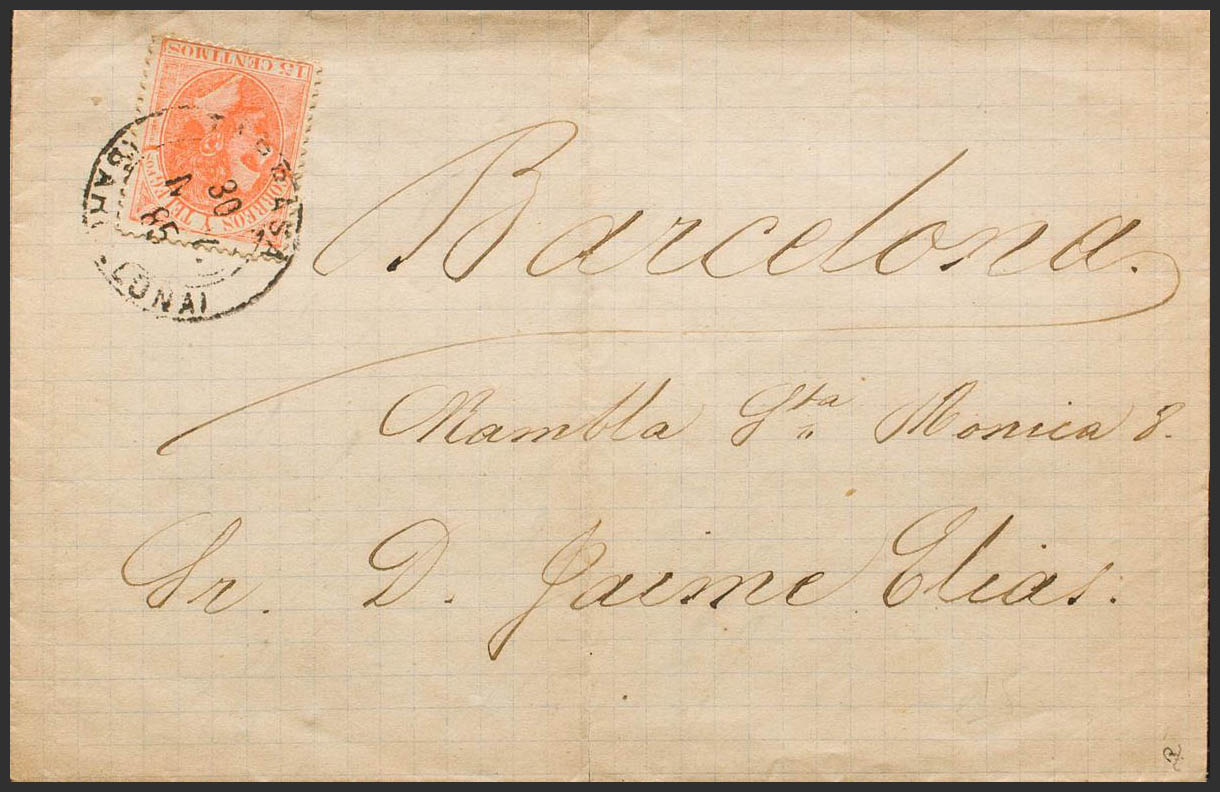 15 CENTIMOS
CORREOS Y TELEGFOS
30
85
Barcelona.
Rambla Sta Monica 8.
Sr. D. Jaime Elias.